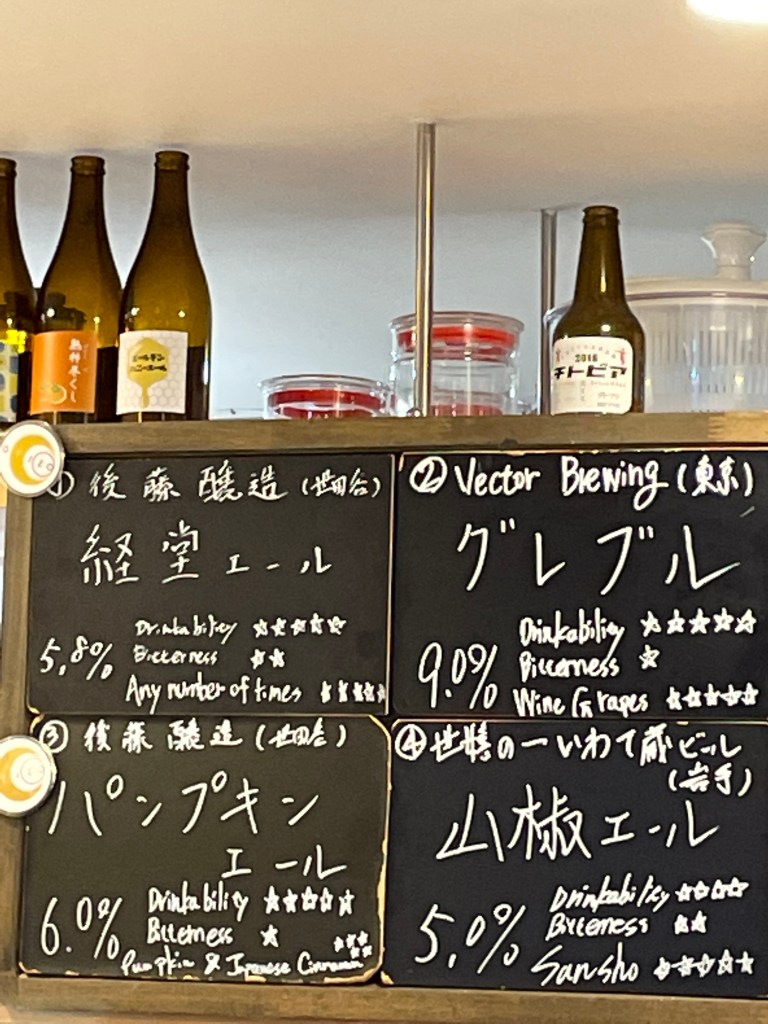 熟柿尽くし
ゴールデン
ハニーエール
2016
チトビア
① 後藤醸造(世田谷)
経堂エール
5.8%
Drinkability ☆☆☆☆☆
Bitterness ☆☆
Any number of times ☆☆☆☆☆
② Vector Brewing(東京)
グレブル
9.0%
Drinkability ☆☆☆☆☆
Bitterness ☆
Wine Grapes ☆☆☆☆☆
③ 後藤醸造(世田谷)
パンプキン
エール
6.0%
Drinkability ☆☆☆☆☆
Bitterness ☆
Pumpkin & Japanese Cinnamon ☆☆☆☆☆
④ 世嬉の一いわて蔵ビール
(岩手)
山椒エール
5.0%
Drinkability ☆☆☆☆
Bitterness ☆☆
Sansho ☆☆☆☆☆